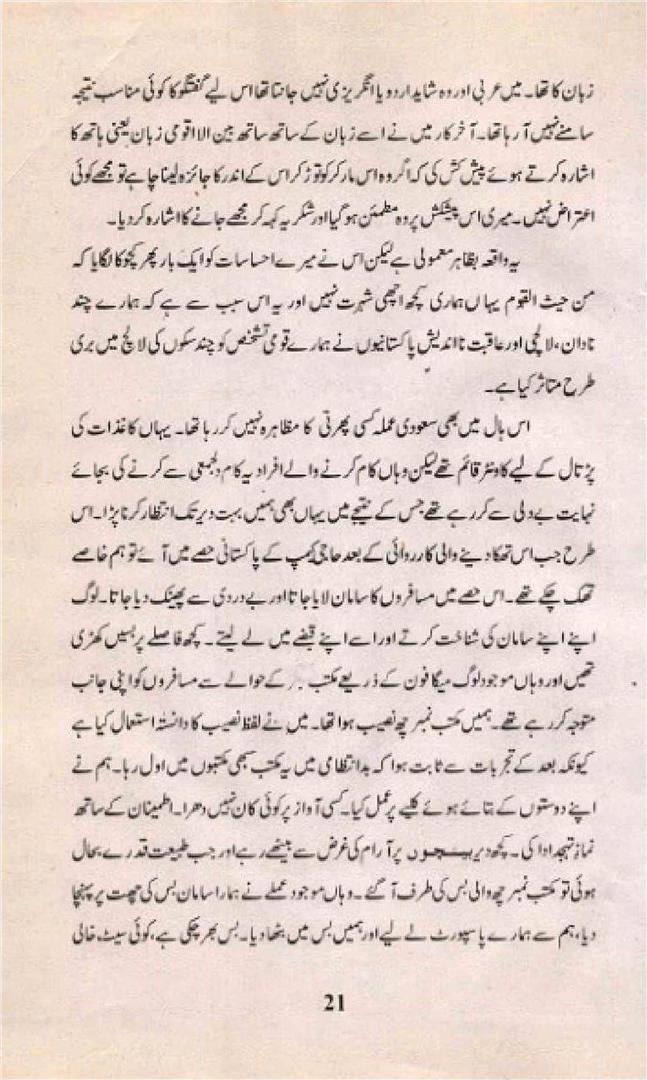 زبان کا تھا۔ میں عربی اور وہ شاید اردو یا انگریزی نہیں جانتا تھا اس لیے گفتگو کا کوئی مناسب نتیجہ
سامنے نہیں آ رہا تھا۔ آخر کار میں نے اسے زبان کے ساتھ ساتھ بین الااقوامی زبان یعنی ہاتھ کا
اشارہ کرتے ہوئے پیش کش کی کہ اگر وہ اس مار کر کو توڑ کر اس کے اندر کا جائزہ لینا چاہے تو مجھے کوئی
اعتراض نہیں۔ میری اس پیشکش پر وہ مطمئن ہو گیا اور شکریہ کہہ کر مجھے جانے کا اشارہ کر دیا۔
یہ واقعہ بظاہر معمولی ہے لیکن اس نے میرے احساسات کو ایک بار پھر کچوکا لگایا کہ
من حیث القوم یہاں ہماری کچھ اچھی شہرت نہیں اور یہ اس سبب سے ہے کہ ہمارے چند
نادان، لالچی اور عاقبت نااندیش پاکستانیوں نے ہمارے قومی تشخص کو چند سکوں کی لالچ میں بری
طرح متاثر کیا ہے۔
اس ہال میں بھی سعودی عملہ کسی پھرتی کا مظاہرہ نہیں کر رہا تھا۔ یہاں کاغذات کی
پڑتال کے لیے کاونٹر قائم تھے لیکن وہاں کام کرنے والے افراد یہ کام دلجمعی سے کرنے کی بجائے
نہایت بے دلی سے کر رہے تھے جس کے نتیجے میں یہاں بھی ہمیں بہت دیر تک انتظار کرنا پڑا۔ اس
طرح جب اس تھکا دینے والی کارروائی کے بعد حاجی کیمپ کے پاکستانی حصے میں آئے تو ہم خاصے
تھک چکے تھے۔ اس حصے میں مسافروں کا سامان لایا جاتا اور بے دردی سے پھینک دیا جاتا۔ لوگ
اپنے اپنے سامان کی شناخت کرتے اور اسے اپنے قبضے میں لے لیتے۔ کچھ فاصلے پر بسیں کھڑی
تھیں اور وہاں موجود لوگ میگا فون کے ذریعے مکتب کے حوالے سے مسافروں کو اپنی جانب
متوجہ کر رہے تھے۔ ہمیں مکتب نمبر چھ نصیب ہوا تھا۔ میں نے لفظ نصیب کا دانستہ استعمال کیا ہے
کیونکہ بعد کے تجربات سے ثابت ہوا کہ بدانتظامی میں یہ مکتب سبھی مکتبوں میں اول رہا۔ ہم نے
اپنے دوستوں کے بتائے ہوئے کلیے پر عمل کیا۔ کسی آواز پر کوئی کان نہیں دھرا۔ اطمینان کے ساتھ
نماز تہجد ادا کی۔ کچھ دیر بینچوں پر آرام کی غرض سے بیٹھے رہے اور جب طبیعت قدرے بحال
ہوئی تو مکتب نمبر چھ والی بس کی طرف آ گئے۔ وہاں موجود عملے نے ہمارا سامان بس کی چھت پر پہنچا
دیا، ہم سے ہمارے پاسپورٹ لے لیے اور ہمیں بس میں بٹھا دیا۔ بس بھر چکی ہے، کوئی سیٹ خالی
21